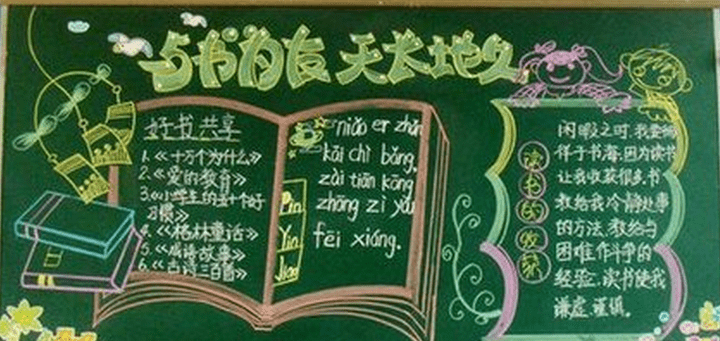 与书为友 天长地久
好书共享
1.《十万个为什么》
2.《爱的教育》
3.《小学生的五十个好
习惯》
4.《格林童话》
5.《成语故事》
6.《古诗三百首》
Pin
Yin
Jiao
niǎo er zhāng
kāi chì bǎng,
zài tiān kōng
zhōng zì yóu
fēi xiáng.
读书的收获
闲暇之时,我要徜
徉于书海,因为读书
让我收获很多。书
教给我冷静处事
的方法,教给与
困难作斗争的
经验,读书使我
谦虚,谨慎。